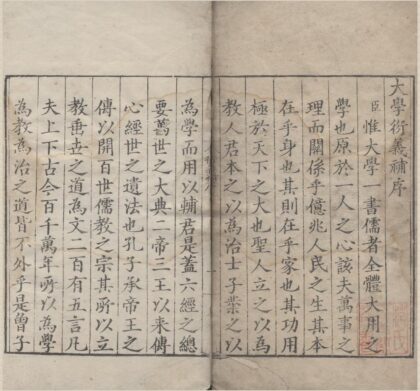 大學衍義補序
臣惟大學一書儒者全體大用之
學也原於一人之心該夫萬事之
理而關係乎億兆人民之生其本
在乎身也其則在乎家也其功用
極於天下之大也聖人立之以為
教人君本之以為治士子業之以
為學而用以輔君是蓋六經之總
要萬世之大典二帝三王以來傳
心經世之遺法也孔子承帝王之
傳以開百世儒教之宗其所以立
教垂世之道為文二百有五言凡
夫上下古今百千萬年所以為學
為教為治之道皆不外乎是曾子